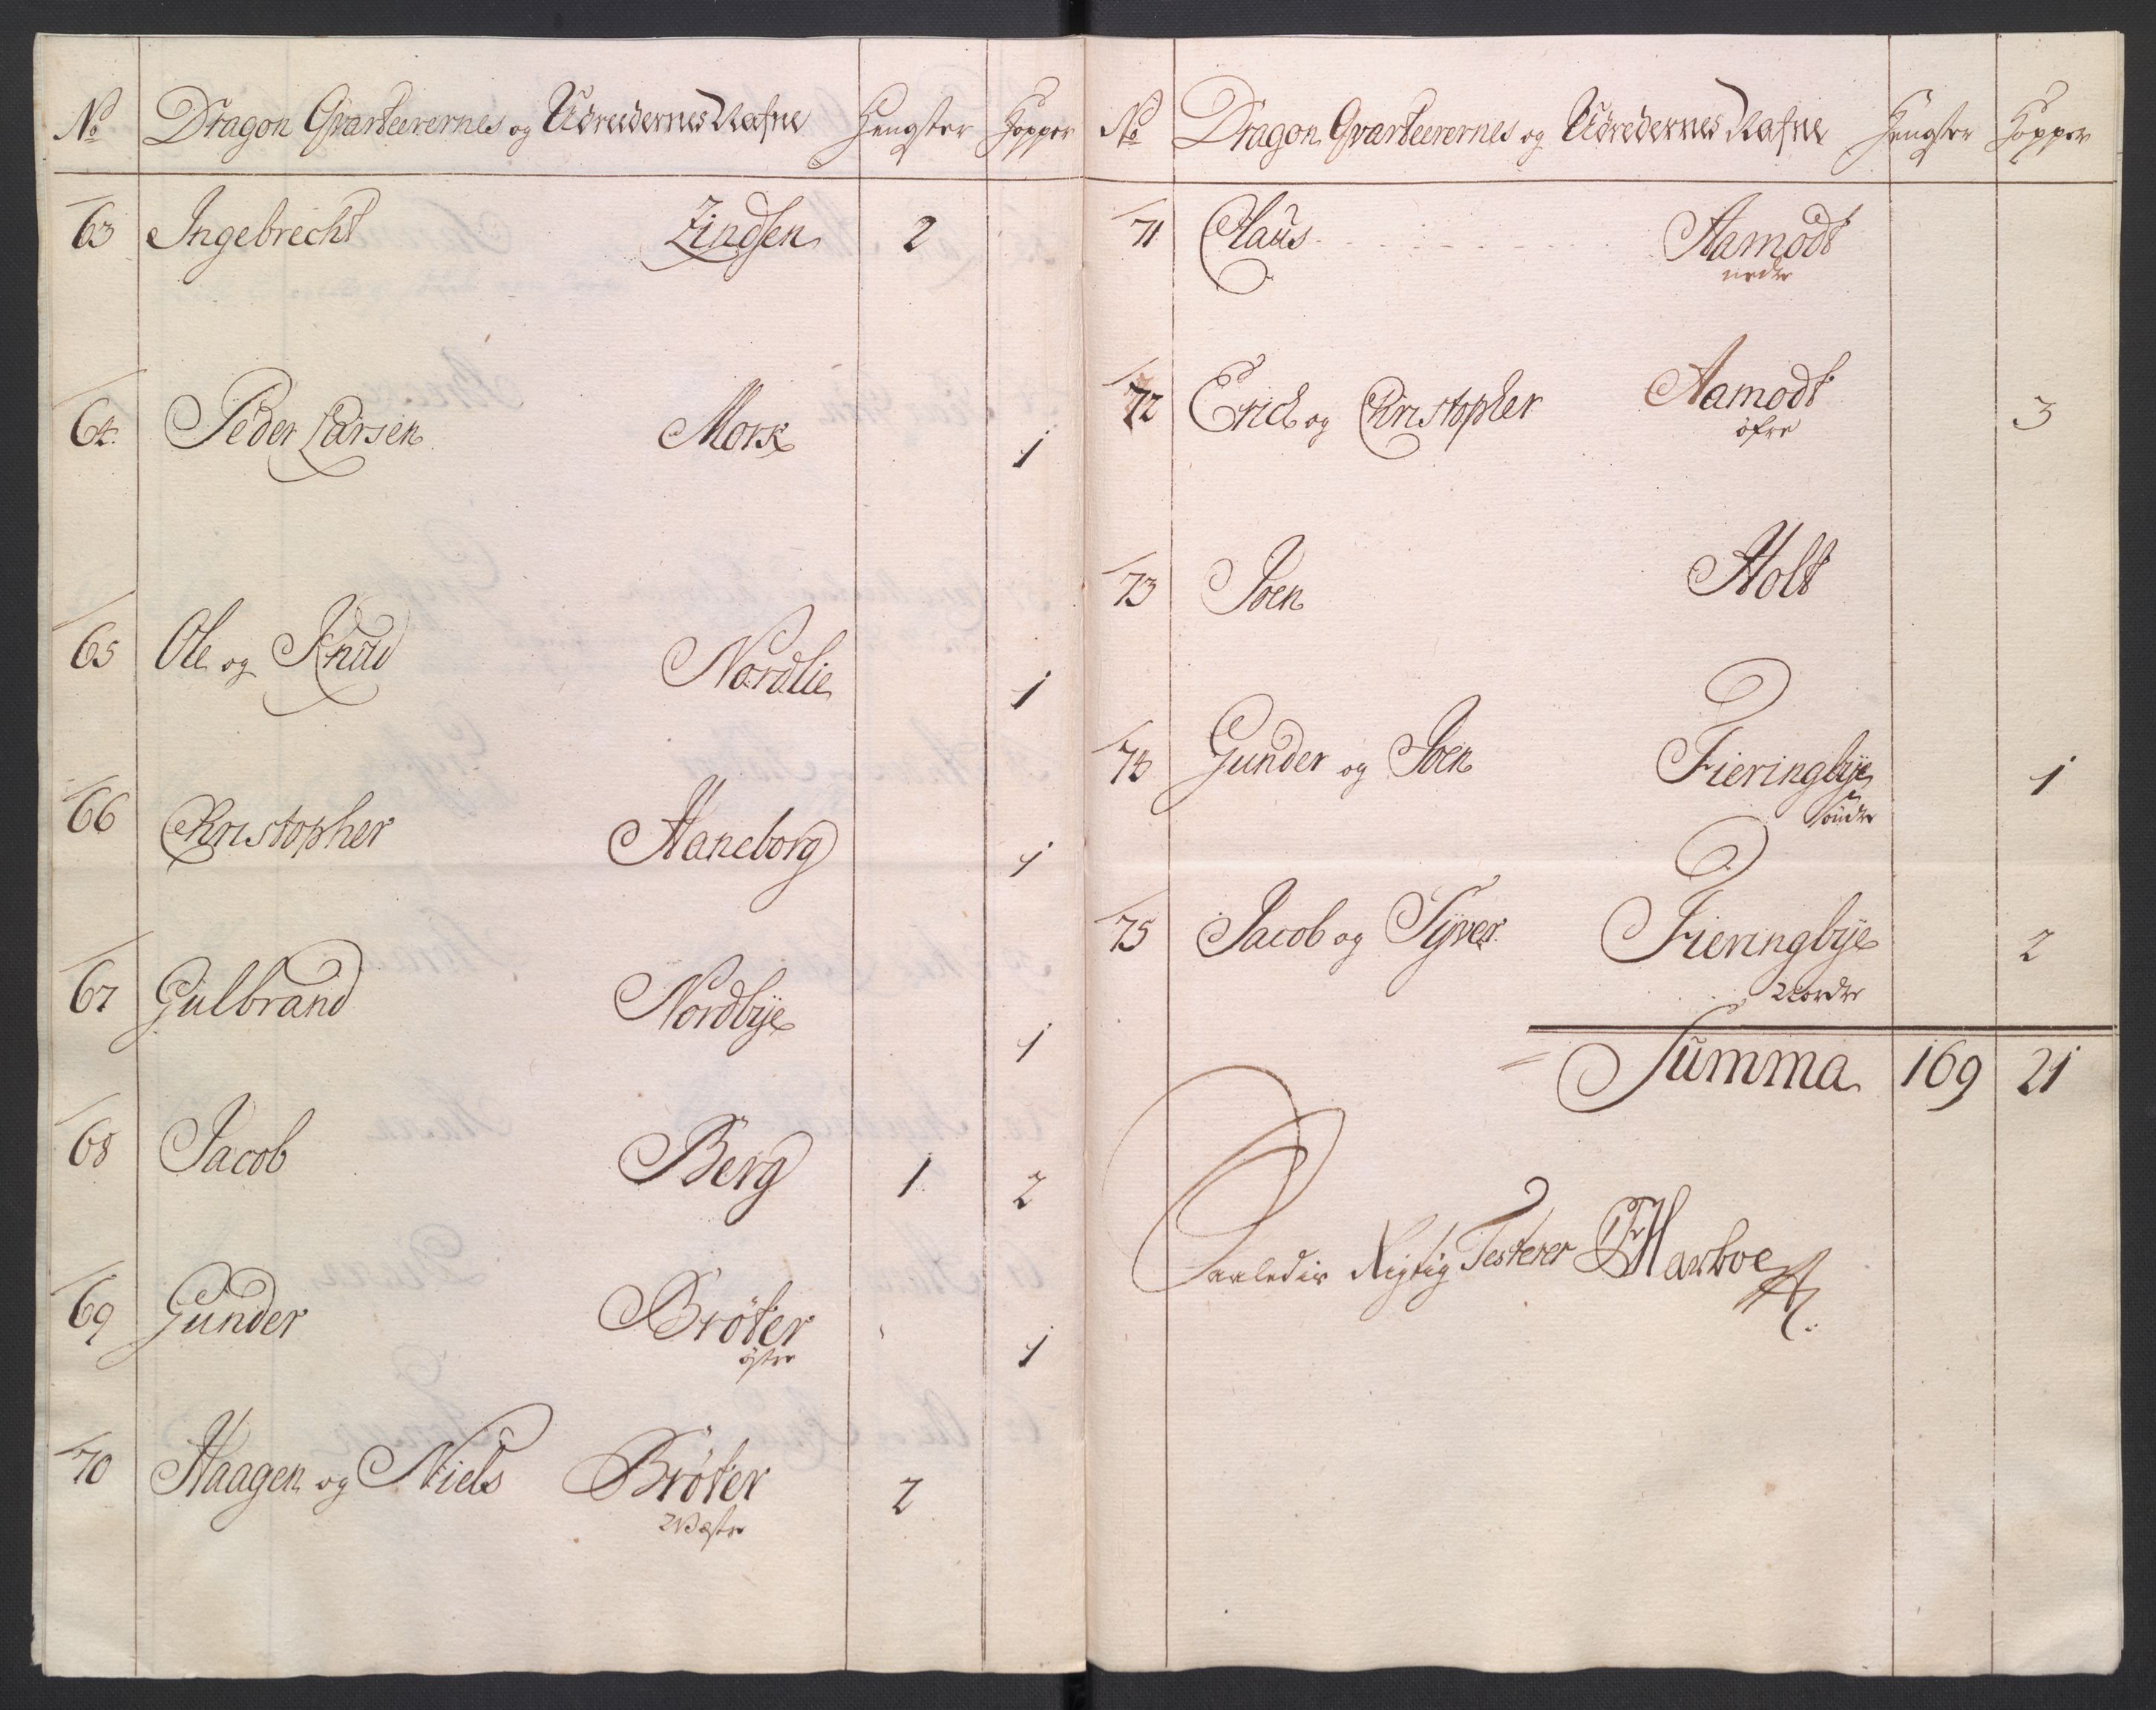 No Dragon Qvarteerernes og Udreedernes Nafne Hengster Hopper
63 Ingebrecht Lindsen 2
64 Peder Larsen Mork 1
65 Ole og Knud Nordlie 1
66 Christopher Haneborg 1
67 Gulbrand Nordbye 1
68 Jacob Berg 1 2
69 Gunder Bröter 1
öster
70 Haagen og Niels Bröter 2
Wæster
No Dragon Qvarteerernes og Udredernes Nafne Hengster Hopper
71 Claus Aamodt
nedre
72 Erich og Christopher Aamodt 3
öfre
73 Joen Holt
74 Gunder og Joen Fieringbye 1
söndre
75 Jacob og Syver Fieringbye 2
Nordre
Summa 169 21
Saaledis Rigtig Testerer Harboe